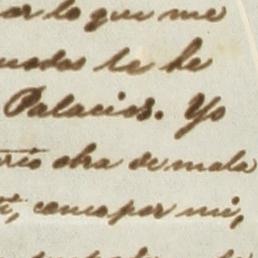 ar lo que me
uedas te he
Palacios. Yo
rio obra de mala
como por mi,